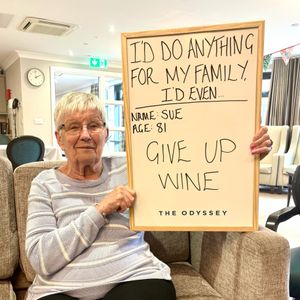 I'D DO ANYTHING
FOR MY FAMILY,
I'D EVEN...
NAME: SUE
AGE: 81
GIVE UP
WINE
THE ODYSSEY